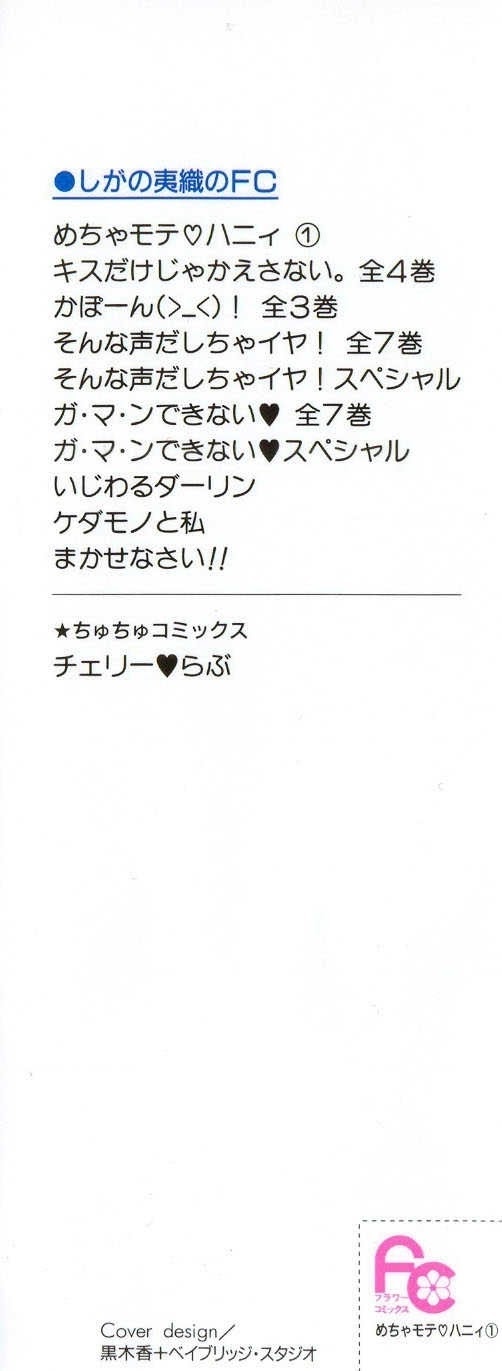 ●しがの夷織のFC
めちゃモテ♡ハニィ ①
キスだけじゃかえさない。全4巻
かぽーん(>_<)！ 全3巻
そんな声だしちゃイヤ！ 全7巻
そんな声だしちゃイヤ！スペシャル
ガ・マ・ンできない♥ 全7巻
ガ・マ・ンできない♥スペシャル
いじわるダーリン
ケダモノと私
まかせなさい!!
★ちゅちゅコミックス
チェリー♥らぶ
FC
フラワー
コミックス
めちゃモテ♡ハニィ①
Cover design／
黒木香＋ベイブリッジ・スタジオ